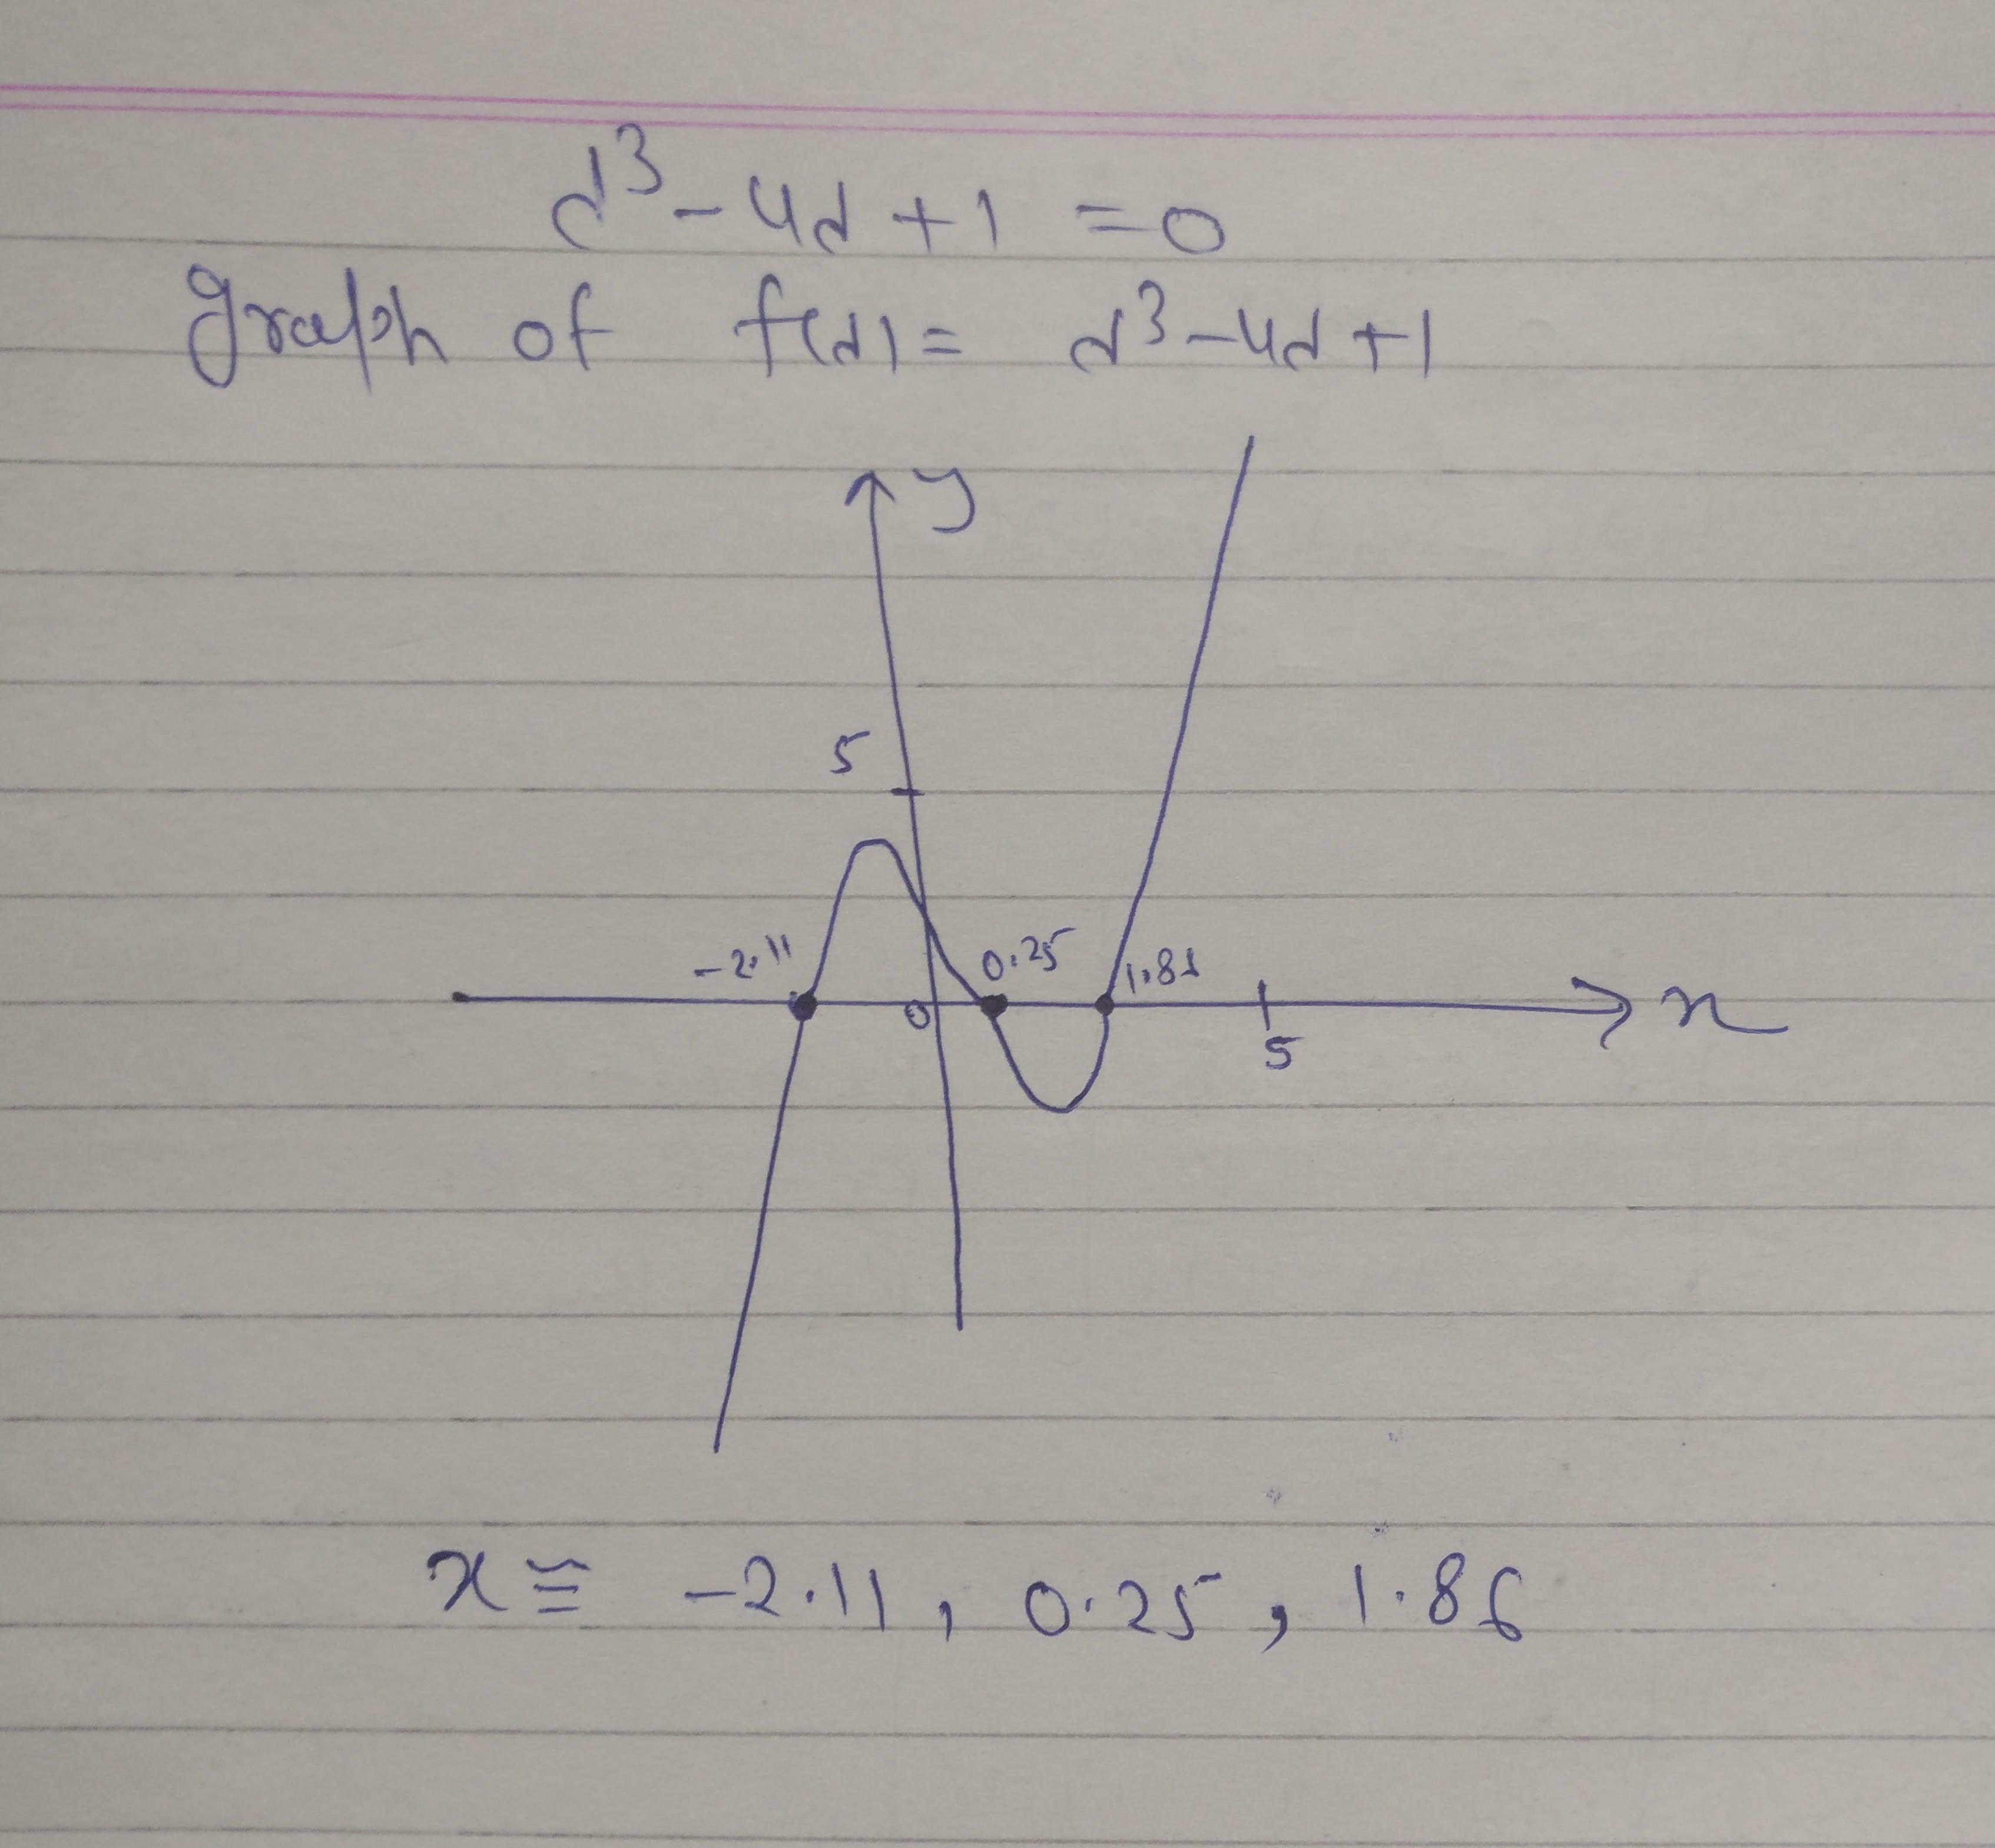 d³ - 4d + 1 = 0
graph of f(d) = d³ - 4d + 1
y
5
-2.11 0.25 1.81
0 x
5
x ≅ -2.11, 0.25, 1.86